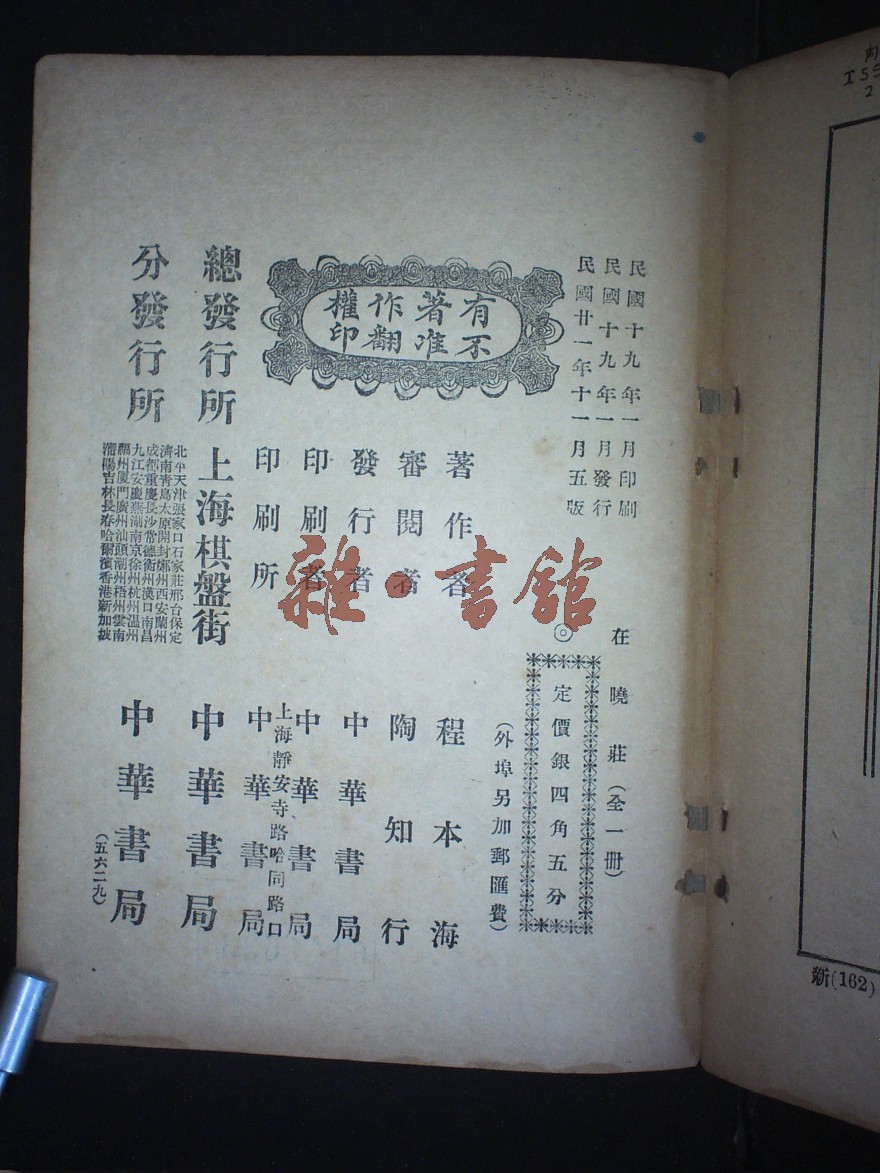 民國十九年一月印刷
民國十九年一月發行
民國廿一年十一月五版
在曉莊(全一冊)
◎
定價銀四角五分
(外埠另加郵匯費)
有著作權
不准翻印
著作者 程本海
審閱者 陶知行
發行者 中華書局
印刷者 中華書局
上海靜安寺路哈同路口
印刷所 中華書局
總發行所 上海棋盤街 中華書局
分發行所
北平天津張家口石家莊邢台保定
濟南青島太原開封鄭州西安蘭州
成都重慶長沙常德衡州漢口南昌
九江安慶蕪湖南京徐州杭州溫州
福州廈門廣州汕頭潮州梧州雲南
瀋陽吉林長春哈爾濱香港新加坡
中華書局
(五六二九)
雜·書館
新(162)